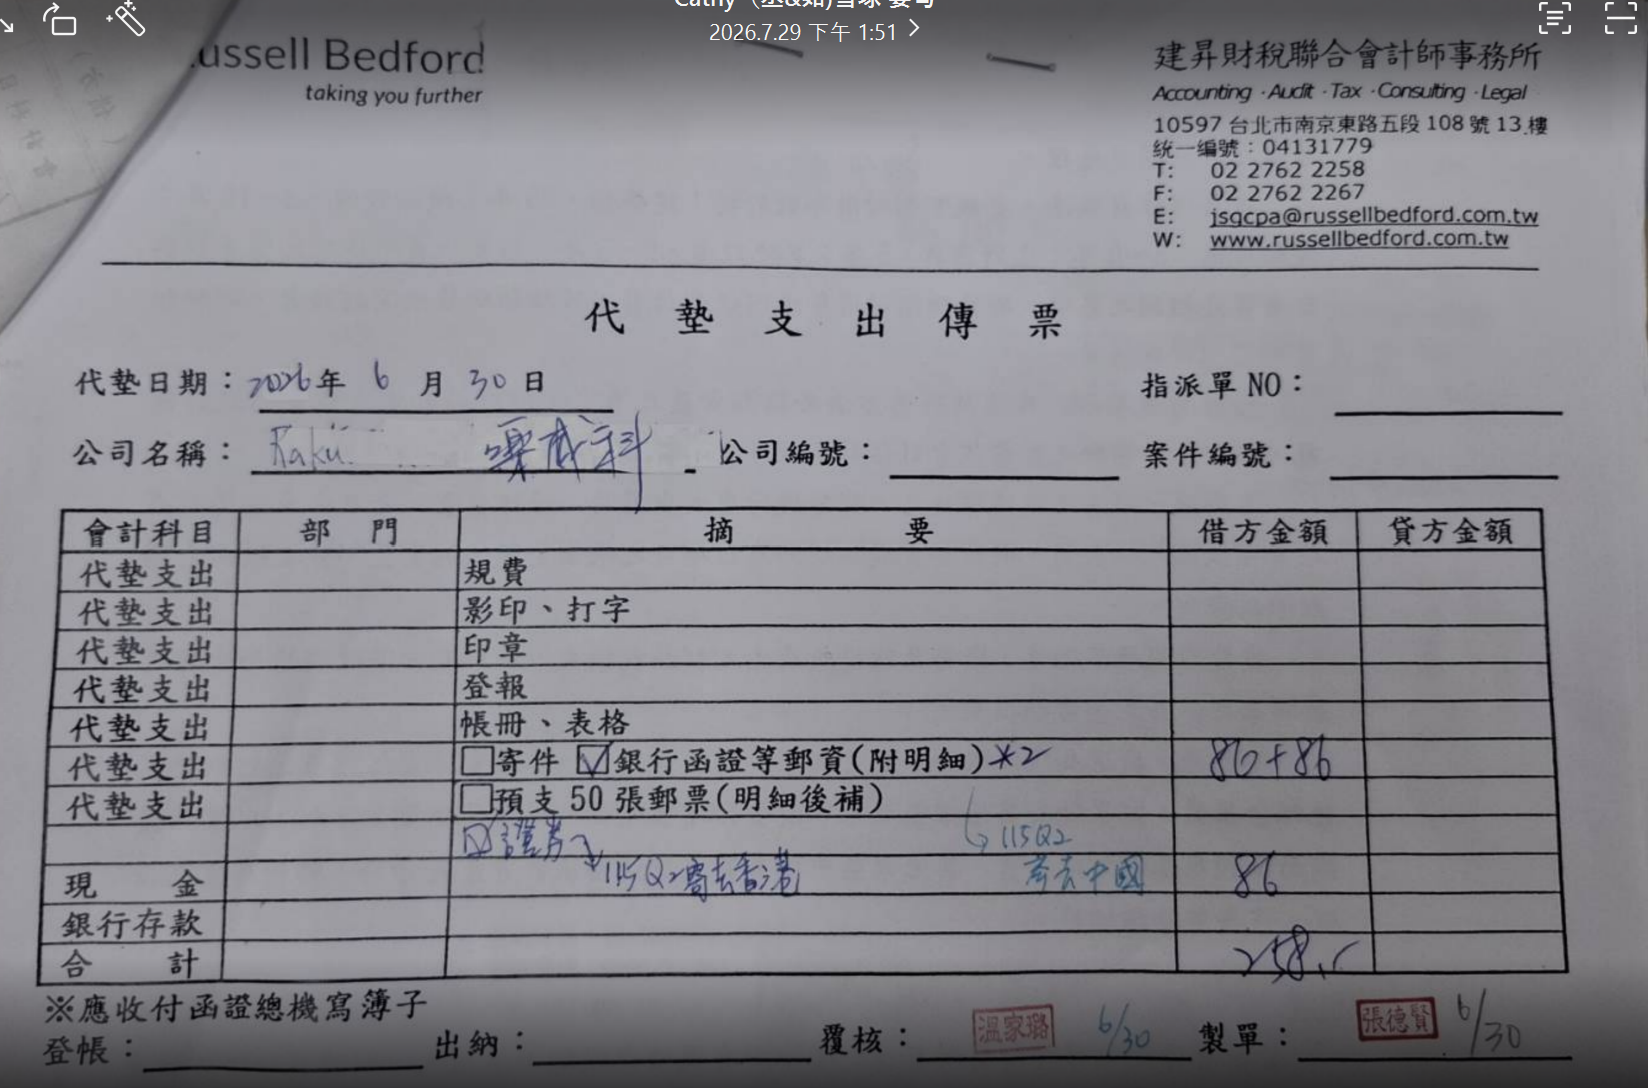 2026.7.29 下午 1:51
ussell Bedford
taking you further
建昇財稅聯合會計師事務所
Accounting · Audit · Tax · Consulting · Legal
10597 台北市南京東路五段 108 號 13 樓
統一編號：04131779
T: 02 2762 2258
F: 02 2762 2267
E: jsgcpa@russellbedford.com.tw
W: www.russellbedford.com.tw
代墊支出傳票
代墊日期：2026年 6 月 30 日
指派單 NO：
公司名稱：Raku 樂威科
公司編號：
案件編號：
會計科目 部門 摘要 借方金額 貸方金額
代墊支出 規費
代墊支出 影印、打字
代墊支出 印章
代墊支出 登報
代墊支出 帳冊、表格
代墊支出 □寄件 ☑銀行函證等郵資(附明細)*2 86+86
代墊支出 □預支 50 張郵票(明細後補)
☑證券 115Q2
115Q2寄去香港 寄去中國
現金 86
銀行存款
合計 258
※應收付函證總機寫簿子
登帳： 出納： 覆核：溫家璐 6/30 製單：張德賢 6/30